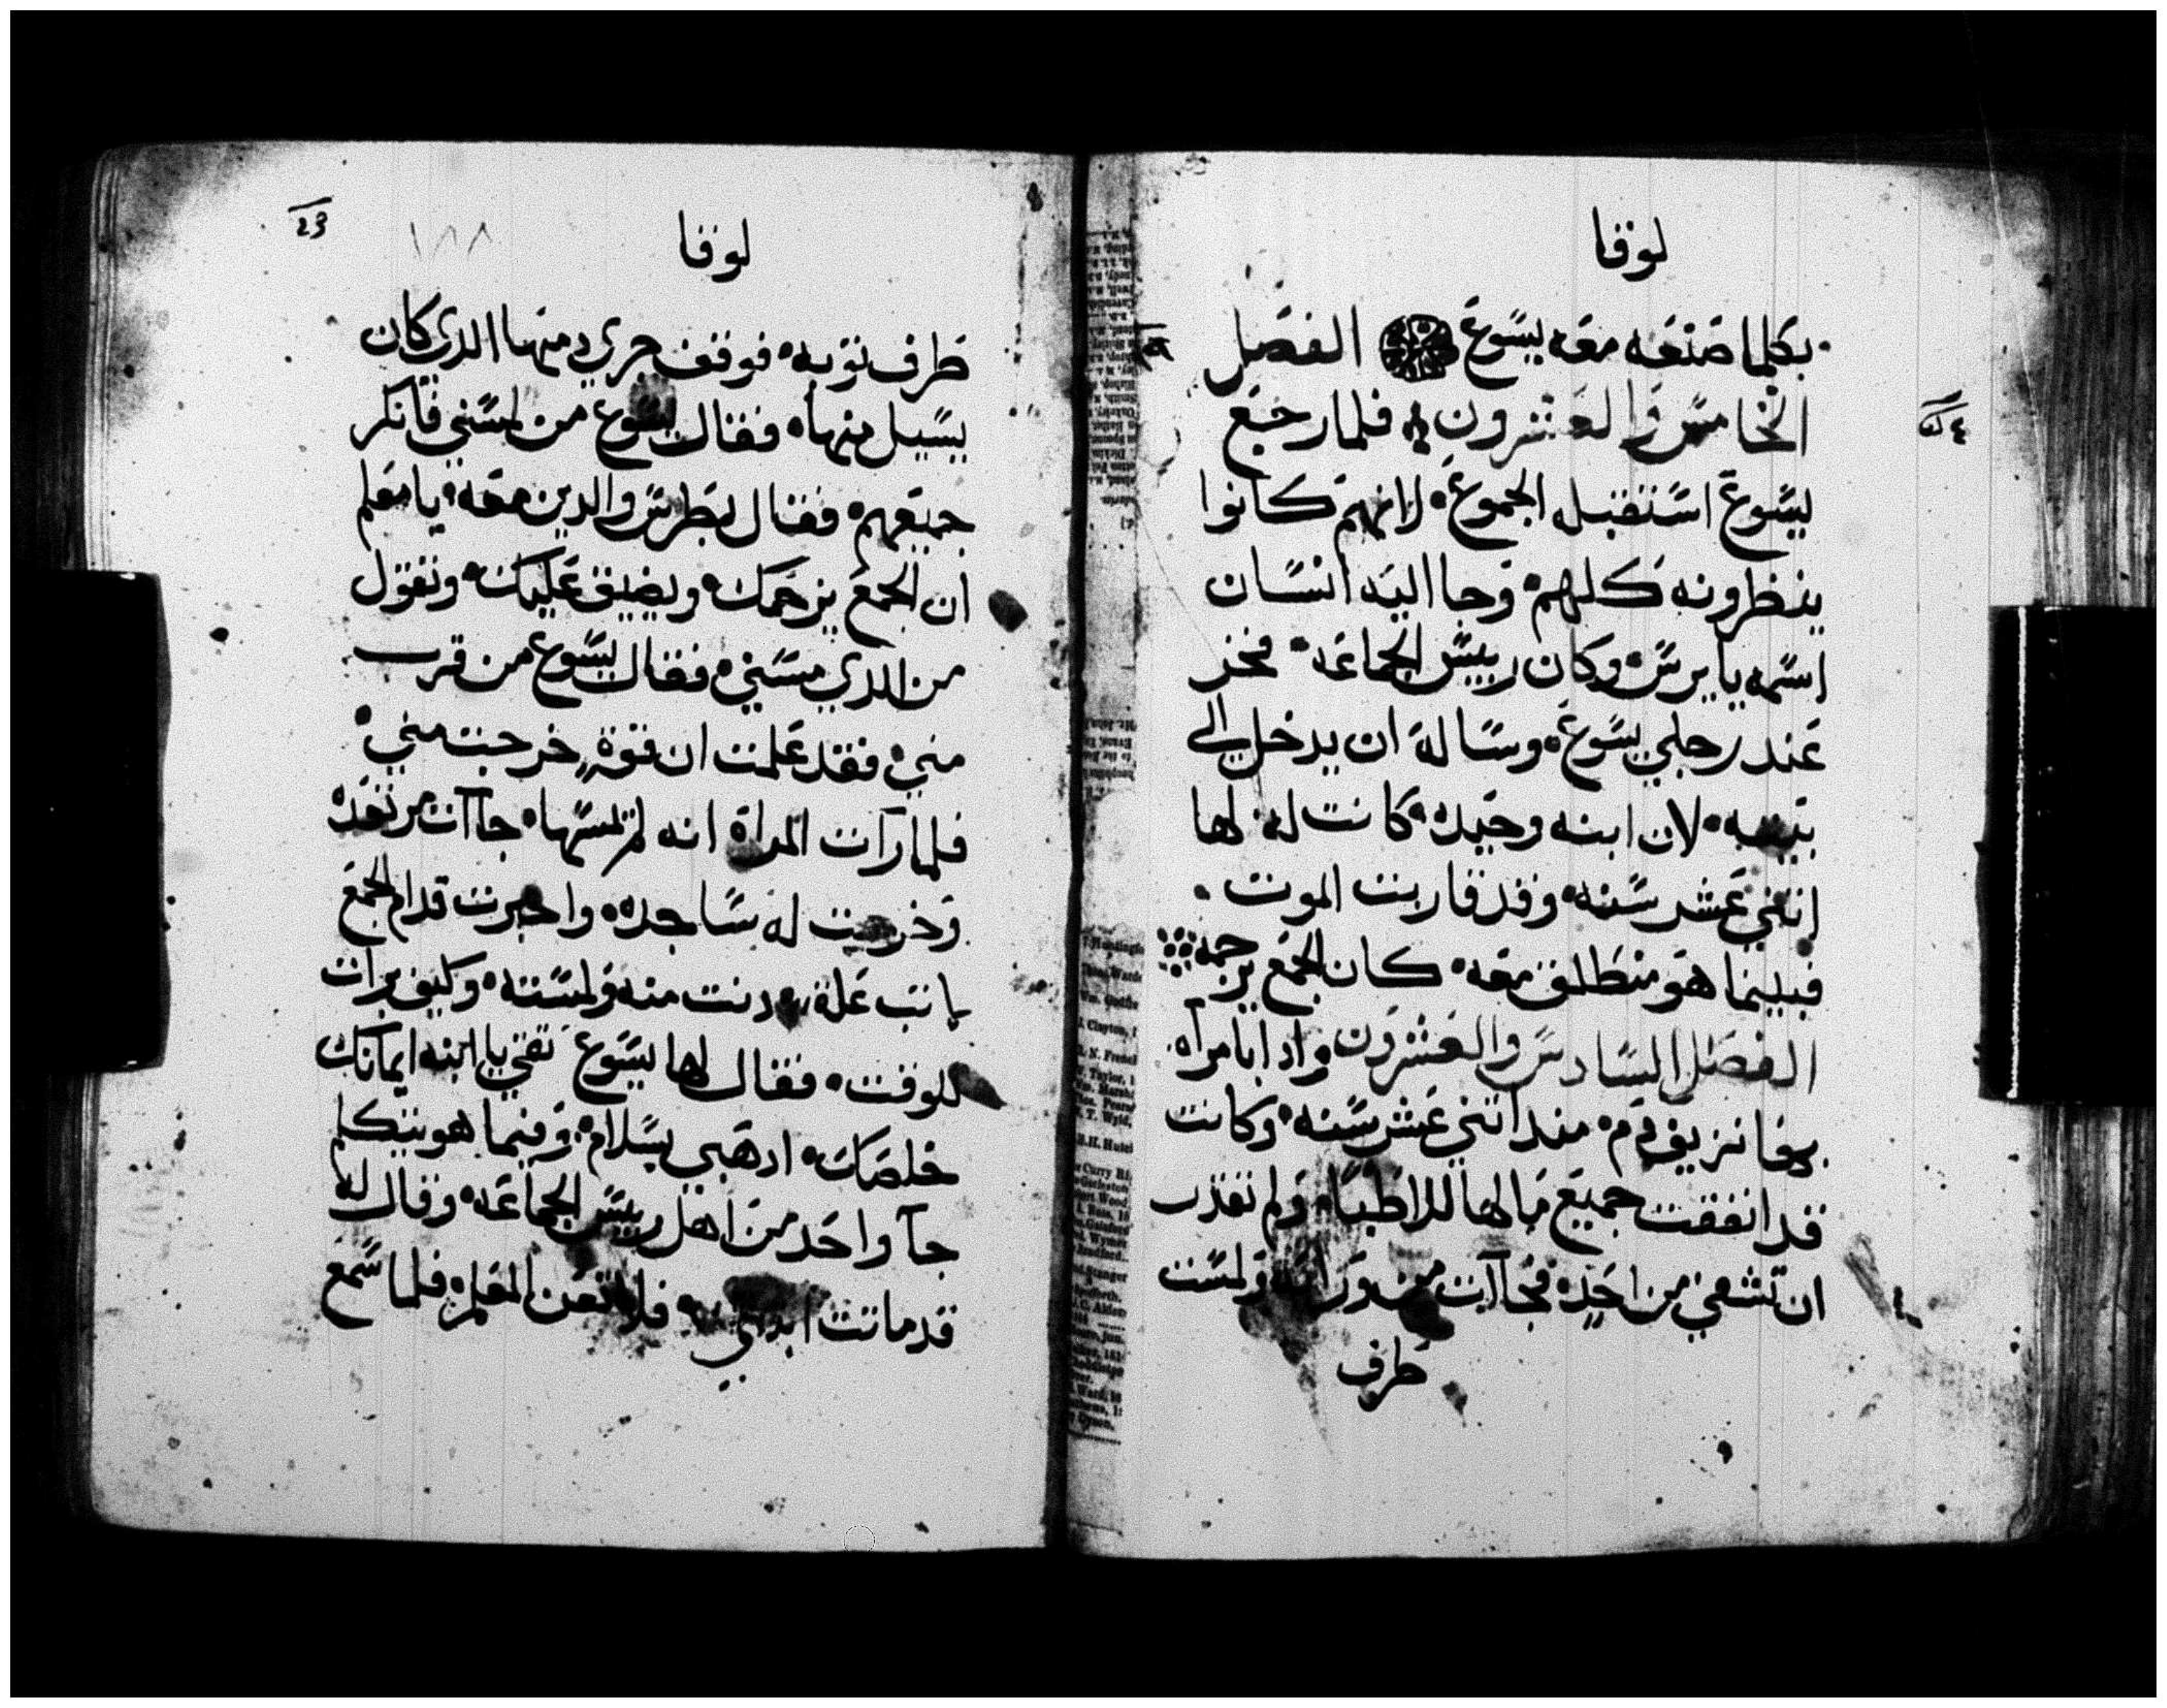 لوقا
بكلما صنعه معه يسوع الفصل
الخامس والعشرون فلما رجع
يسوع استقبله الجموع لانهم كانوا
ينظرونه كلهم وجا اليه انسان
اسمه يايرس وكان رييس الجماعه فخر
عند رجلي يسوع وساله ان يدخل الى
بيته لان ابنه وحيده كانت له لها
اثني عشر سنه وقد قاربت الموت
فبينما هو منطلق معه كان الجمع يزحمه
الفصل السادس والعشرون واذا بامراه
بها نزيف دم منذ اثني عشر سنه وكانت
قد انفقت جميع مالها للاطباء ولم تقدر
ان تشفي من احد فجاات من ورائه ولمست
طرف
لوقا
١٨٨
طرف ثوبه فوقف جري دمها الدي كان
يسيل منها فقال يسوع من لمسني فانكر
جميعهم فقال بطرس والدين معه يا معلم
ان الجمع يزحمك ويضيق عليك وتقول
من الدي مسني فقال يسوع من قرب
مني فقد علمت ان قوة خرجت مني
فلما رات المراة انه لم ينسها جاات مرتعده
وخرت له ساجده واخبرت قدام الجمع
باي علة دنت منه ولمسته وكيف برات
للوقت فقال لها يسوع ثقي يا ابنه ايمانك
خلصك ادهبي بسلام وفيما هو يتكلم
جآ واحد من اهل رييس الجماعه وقال له
قد ماتت ابنتك فلا تتعن المعلم فلما سمع